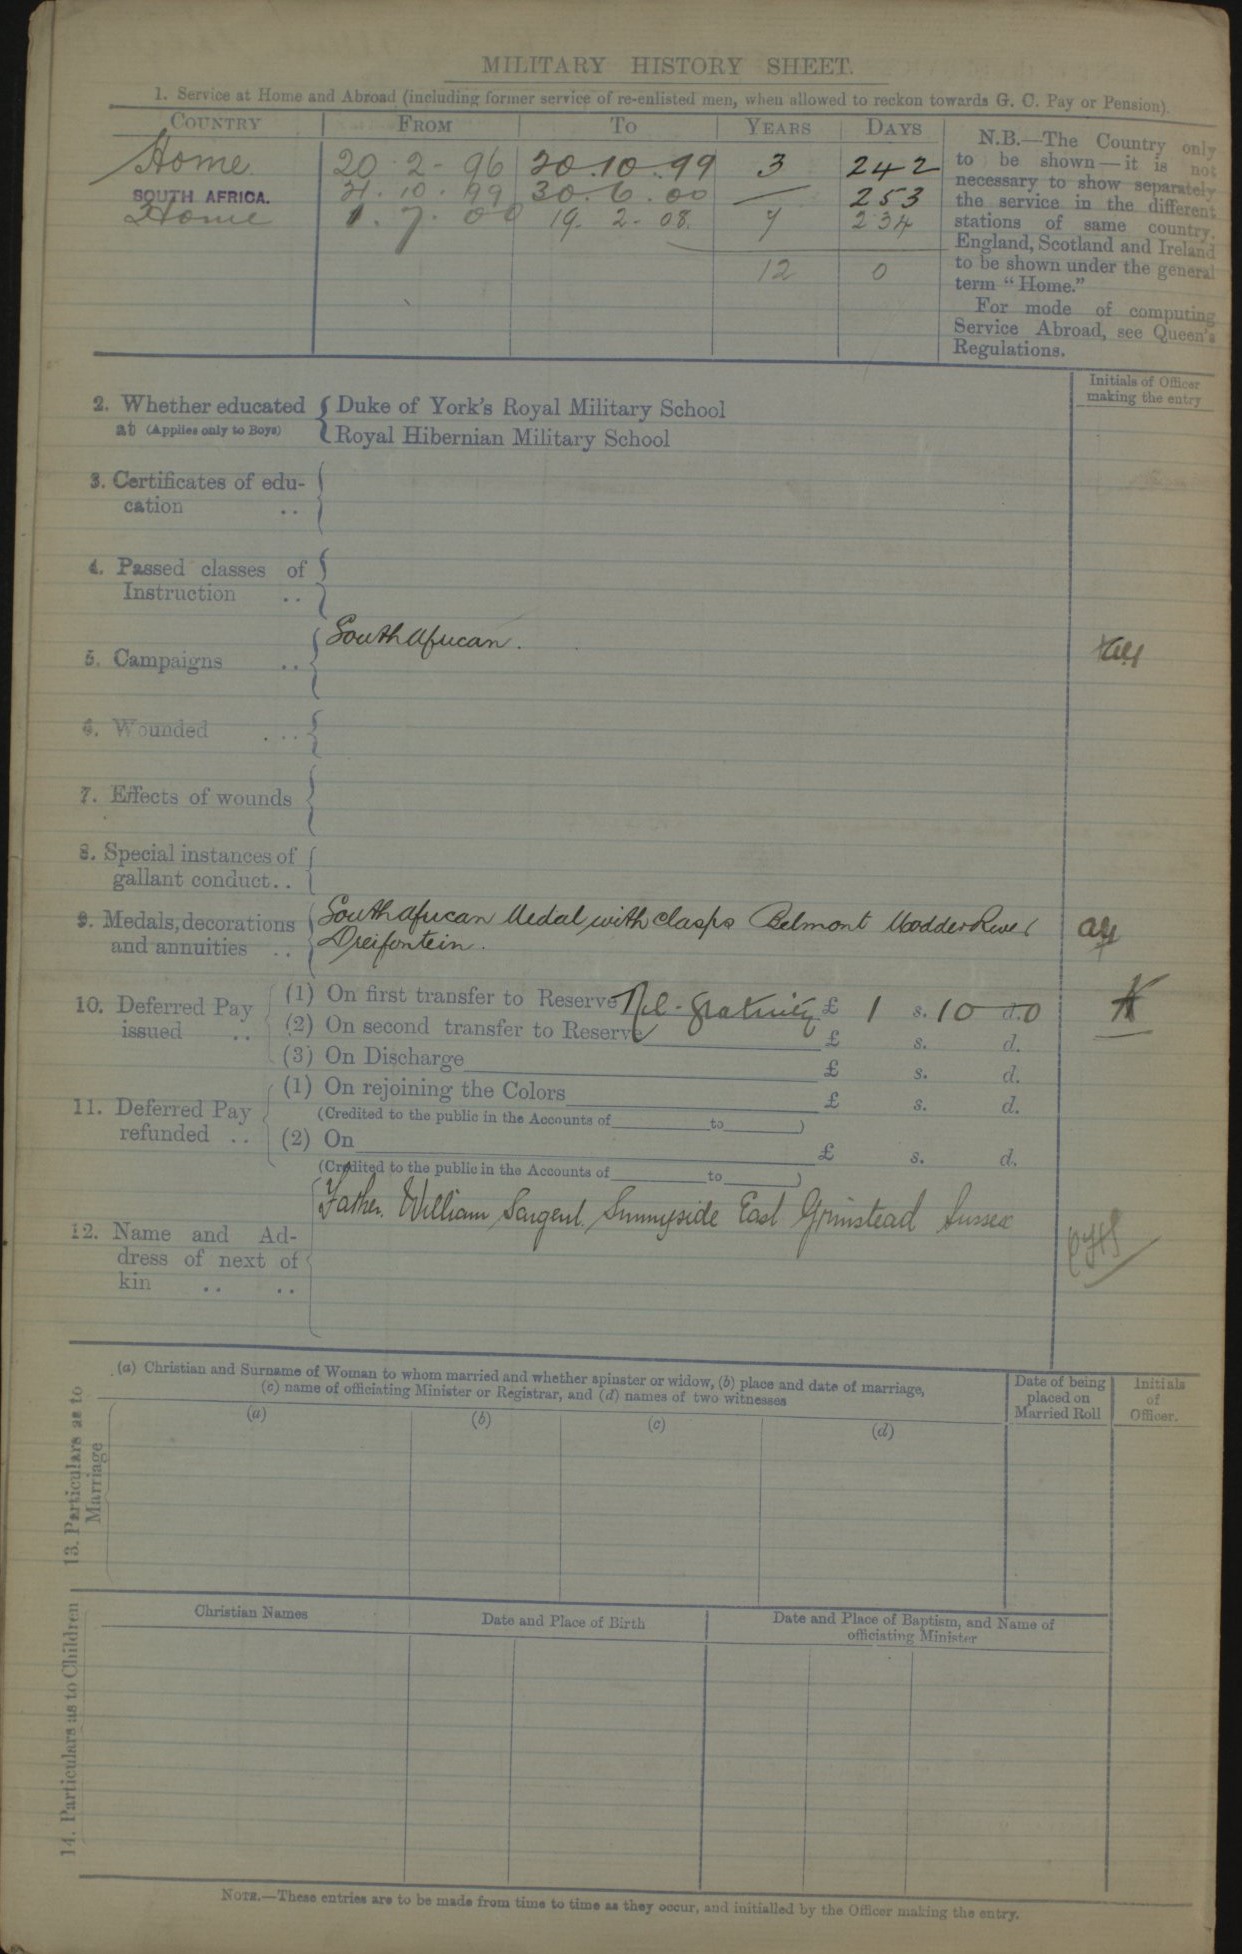 MILITARY HISTORY SHEET.
1. Service at Home and Abroad (including former service of re-enlisted men, when allowed to reckon towards G. C. Pay or Pension).
COUNTRY FROM TO YEARS DAYS
Home 20. 2 - 96 20.10.99 3 242
SOUTH AFRICA. 21. 10. 99 30. 6. 00 — 253
Home 1. 7. 00 19. 2. 08. 7 234
12 0
N.B.—The Country only
to be shown—it is not
necessary to show separately
the service in the different
stations of same country.
England, Scotland and Ireland
to be shown under the general
term "Home."
For mode of computing
Service Abroad, see Queen's
Regulations.
Initials of Officer
making the entry
2. Whether educated { Duke of York's Royal Military School
at (Applies only to Boys) { Royal Hibernian Military School
3. Certificates of edu-
cation ..
4. Passed classes of
Instruction ..
South African.
5. Campaigns ..
6. Wounded ...
7. Effects of wounds
8. Special instances of
gallant conduct..
9. Medals, decorations South African Medal with clasps Belmont Modder River
and annuities .. Dreifontein.
10. Deferred Pay (1) On first transfer to Reserve gratuity £ 1 s. 10 d. 0
issued .. (2) On second transfer to Reserve £ s. d.
(3) On Discharge £ s. d.
11. Deferred Pay (1) On rejoining the Colors £ s. d.
refunded .. (Credited to the public in the Accounts of to )
(2) On £ s. d.
(Credited to the public in the Accounts of to )
Father. William Sargent. Sunnyside East Grinstead Sussex
12. Name and Ad-
dress of next of
kin .. ..
13. Particulars as to
Marriage
(a) Christian and Surname of Woman to whom married and whether spinster or widow, (b) place and date of marriage,
(c) name of officiating Minister or Registrar, and (d) names of two witnesses
Date of being
placed on
Married Roll
Initials
of
Officer.
(a) (b) (c) (d)
14. Particulars as to Children
Christian Names Date and Place of Birth Date and Place of Baptism, and Name of
officiating Minister
NOTE.—These entries are to be made from time to time as they occur, and initialled by the Officer making the entry.